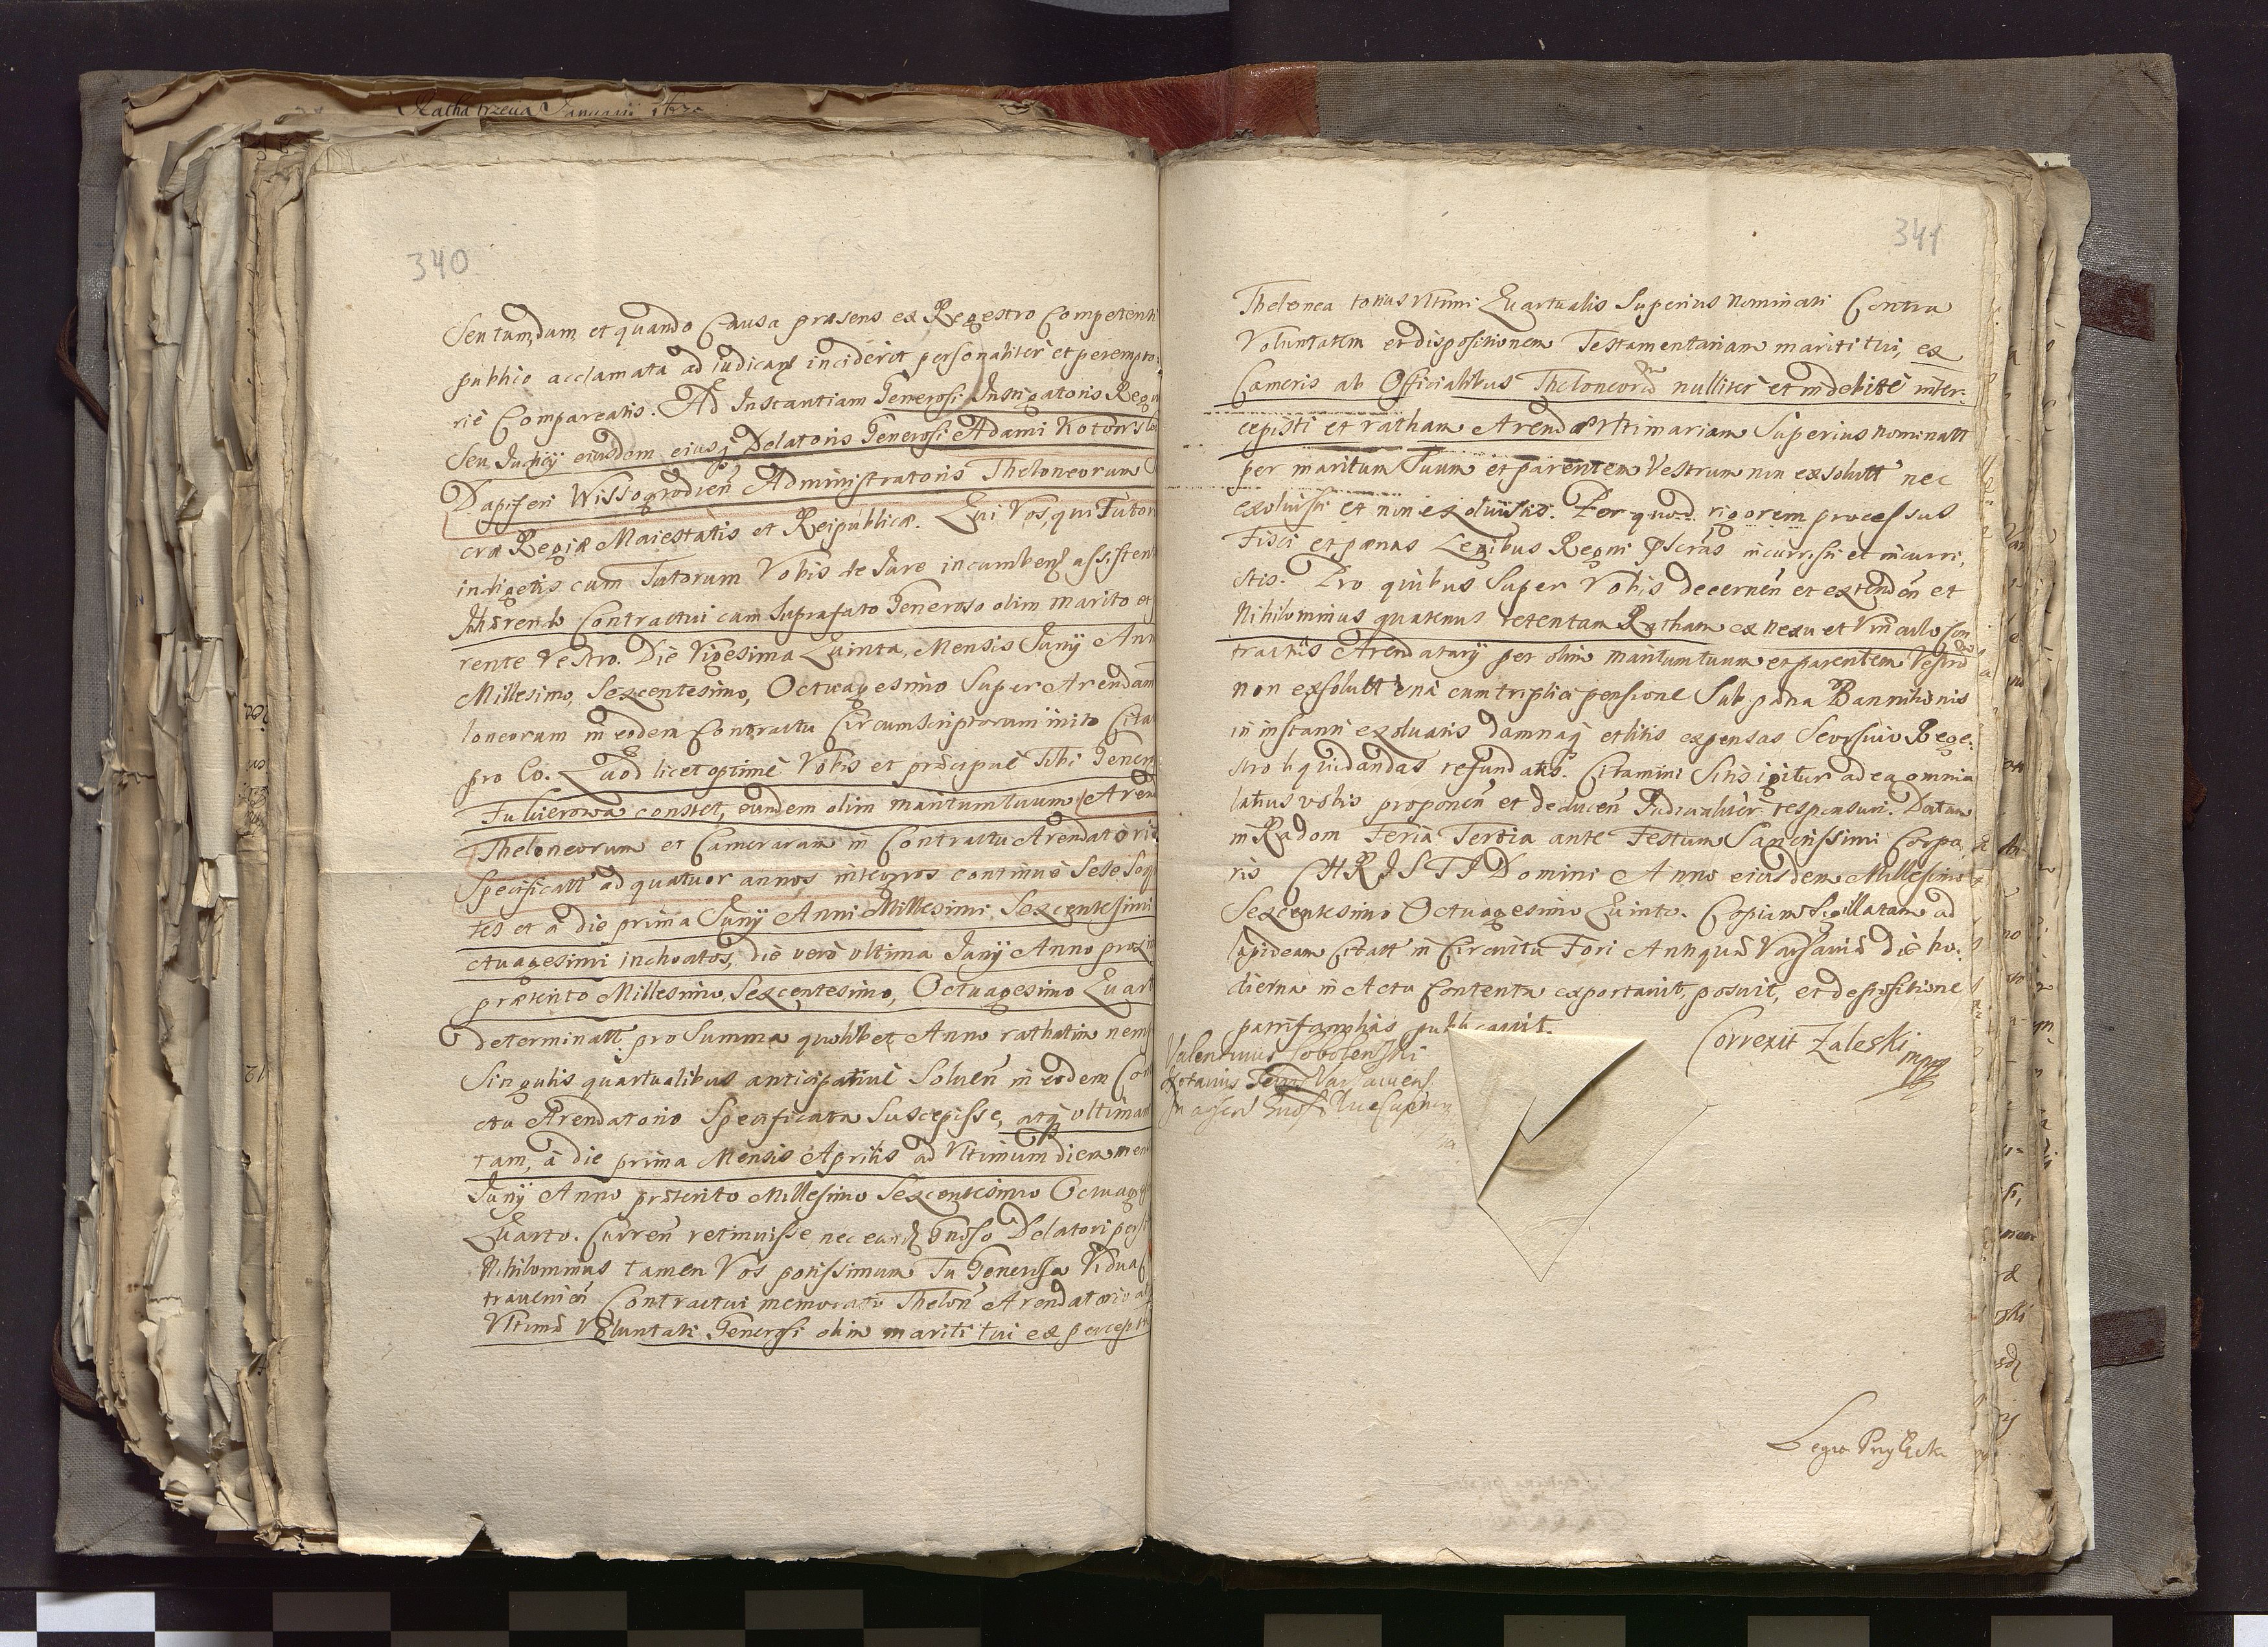 Ratha trzecia Januarii
340
Sentandam, et quando Causa præsens ex Regestro Competenti
publicè acclamata ad iudicanḍ inciderit personaliter et perempto
rie Compareatis. Ad Instantiam Generosi Instigatoris Regni
Seu eiusdem eiusq̃ Delatoris Generosi Adami Kotowsk
Dapiferi Wissogrodień Administratoris Theloneorum
cræ Regiæ Maiestatis et Reipublicæ. Qui Vos, qui Tutor
indigetis cum Tutorum Vobis de Jure incumbenḍ assisten
Inhærendo Contractui cum Suprafato Generoso olim marito et
rente Vestro. Die Vigesima Quinta, Mensis Junij Ann
Millesimo, Sexcentesimo, Octuagesimo Super Arendam
loneorum in eodem Contractu Circumscriptorum inito Cita
pro Eo. Quod licet optimè Vobis et præcipuè Tibi Gener
constet, eundem olim maritum tuum Aren
Theloneorum et Camerarum in Contractu Arendatorio
Specificatt ad quatuor annos integros continuè Sese Seq
tes et à die prima Junij Anni Millesimi Sexcentesimi
ctuagesimi inchoatos, die verò ultima Junij Anno proxi
præterito Millesimo, Sexcentesimo, Octuagesimo Quart
determinatt. pro Summa quolibet Anno rathatim nem
Singulis quartualibus anticipativè Soluen̄ in eodem Con
ctu Arendatorio Specificata Suscepisse, atq̃ ultimam
tam, à die prima Mensis Aprilis ad Vltimum diem men
Junij Anno præterito Millesimo Sexcentesimo Octuage
Quarto. Curren̄ retinuisse, nec eanḍ Gnoso Delatori pers
Nihilominus tamen Vos potissimum Tu Generosa Vidua
travenien̄ Contractui memorato Thelon̄ Arendatorio at
Vltimæ Voluntati Generosi olim mariti tui ex percept
341
Thelonea totius Vltimi Quartualis Superius nominati Contra
Voluntatem et dispositionem Testamentariam mariti tui, ex
Cameris ab Officialibus Theloneorũ nulliter et indebitè inter:
cepisti et ratham Arendæ Vltimariam Superius nominatt
per maritum Tuum et parentem Vestrum non exsolutt nec
exoluisti et non exoluistis. Per quod rigorem processus
Fisci et pænas Legibus Regni pscrãs incurristi et incurri,
stis. Pro quibus Super Vobis decernen̄ et extenden̄ et
Nihilominus quatenus retentam Ratham ex nexu et Vinculo Con
tractûs Arendatarij per olim maritum tuum et parentem Vestrũ
non exsolutt unà cum triplici pensione Sub pæna Bannitionis
in instanti exoluatis damnaq̃ et litis expensas Seorsivo Rege:
stro liquidandas refundatis. Citamini Sitis igitur ad ea omnia
latius vobis proponen̄ et deducen̄ Judicialiter responsuri. Datum
in Radom Feria Tertia ante Festum Sanctissimi Corpo
ris CHRISTI Domini Anno eiusdem Millesimo
Sexcentesimo Octuagesimo Quinto. Copiam Sigillatam ad
lapideam Citatt in Circuitu Fori Antiquæ Varsaviæ die ho:
dierna in Actu Contenta exportavit, posuit, et depositione
patrifamilias publicavit.
Correxit Zaleski
mpp
Valentinus Sobolenski